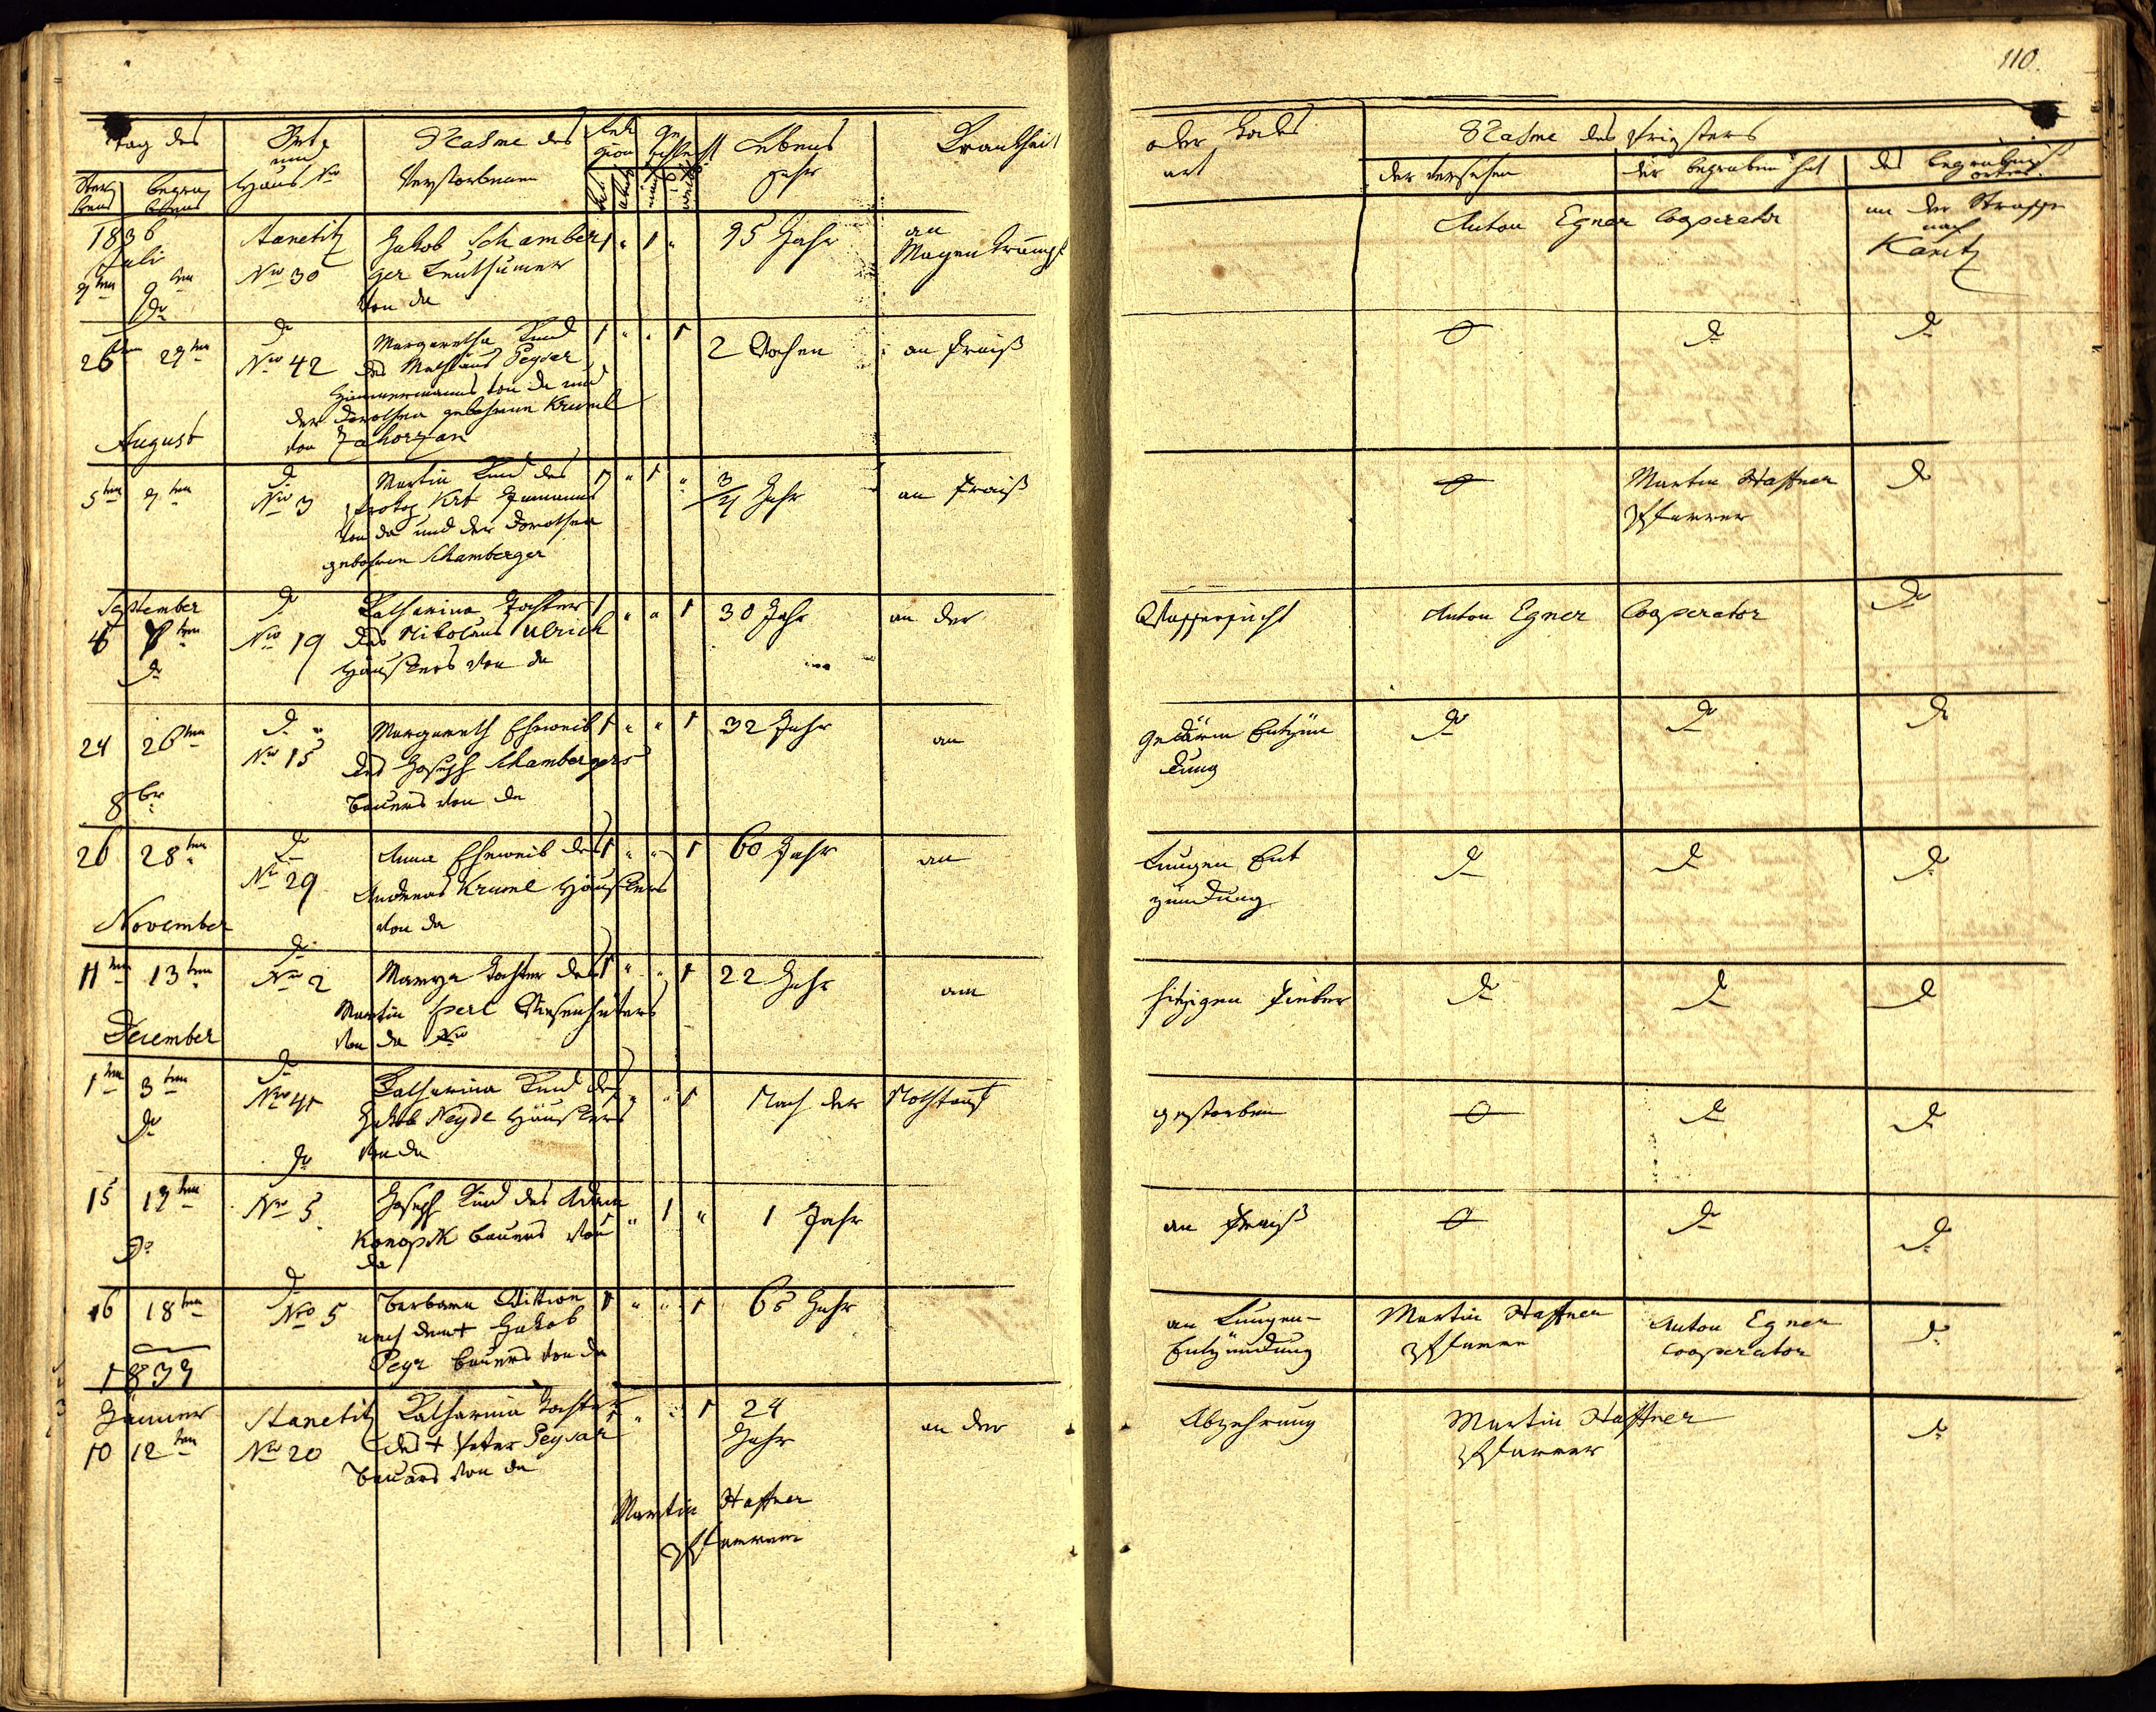 110.
Tag des
Ster
bens
Begra
bens
Ort
und
Haus Nro
Nahme des
Verstorbenen
Reli
gion
Ge
schlecht
Lebens
Jahr
Krankheit
oder Todes
art
Nahme des Priesters
der versehen
der begraben hat
des Begräbniß
ortes
1836
Juli
7ten 9ten
do
Stanetitz
Nro 30
Jakob Schamber
ger
von da
1 " 1 "
75 Jahr
an
Magen Krampf
Anton Egner Cooperator
an der Strasse
nach
Kanitz
26ten 27ten
do
Nro 42
Margaretha Kind
des Mathäus Peysar
Zimmermanns von da und
der Dorothea gebohrene Kruml
von Zahorzan
1 " " 1
2 Wochen
an Frais
0
do
do
August
5ten 7ten
do
Nro 3
Martin Kind des
Prokop Krt
von da und der Dorothea
gebohren Schamberger
1 " 1 "
3/4 Jahr
an Frais
0
Martin Haffner
Pfarrer
do
September
6 8ten
do
do
Nro 19
Katharina Tochter
des Nikolaus Ulrich
Häuslers von da
1 " " 1
30 Jahr
an der
Wassersucht
Anton Egner Cooperator
do
24 26ten
do
Nro 15
Margareth Eheweib
des Joseph Schambergers
Bauers von da
1 " " 1
32 Jahr
an
Gedärm Entzün
dung
do
do
do
8br
26 28ten
do
Nro 29
Anna Eheweib des
Andreas Kruml Häuslers
von da
1 " " 1
60 Jahr
an
Lungen Ent
zündung
do
do
do
November
11ten 13ten
do
Nro 2
Marya Tochter des
Martin Perl
von da
1 " " 1
22 Jahr
am
hitzigen Fieber
do
do
do
December
1ten 3ten
do
do
Nro 41
Katharina Kind des
Jakob Neydl Häuslers
von da
" " 1
Nach der Nothtauf
gestorben
0
do
do
15 17ten
do
do
Nro 5
Joseph Kind des Adam
Konopik Bauers von
da
" 1 "
1 Jahr
an Frais
0
do
do
16 18ten
do
Nro 5
Barbara Wittwe
nach dem + Jakob
Peyr Bauers von da
1 " " 1
65 Jahr
an Lungen-
Entzündung
Martin Haffner
Pfarrer
Anton Egner
Cooperator
do
1837
Jänner
10 12ten
Stanetitz
Nro 20
Katharina Tochter
des + Peter Peysar
Bauers von da
1 " " 1
24
Jahr
an der
Abzehrung
Martin Haffner
Pfarrer
do
Martin Haffner
Pfarrer